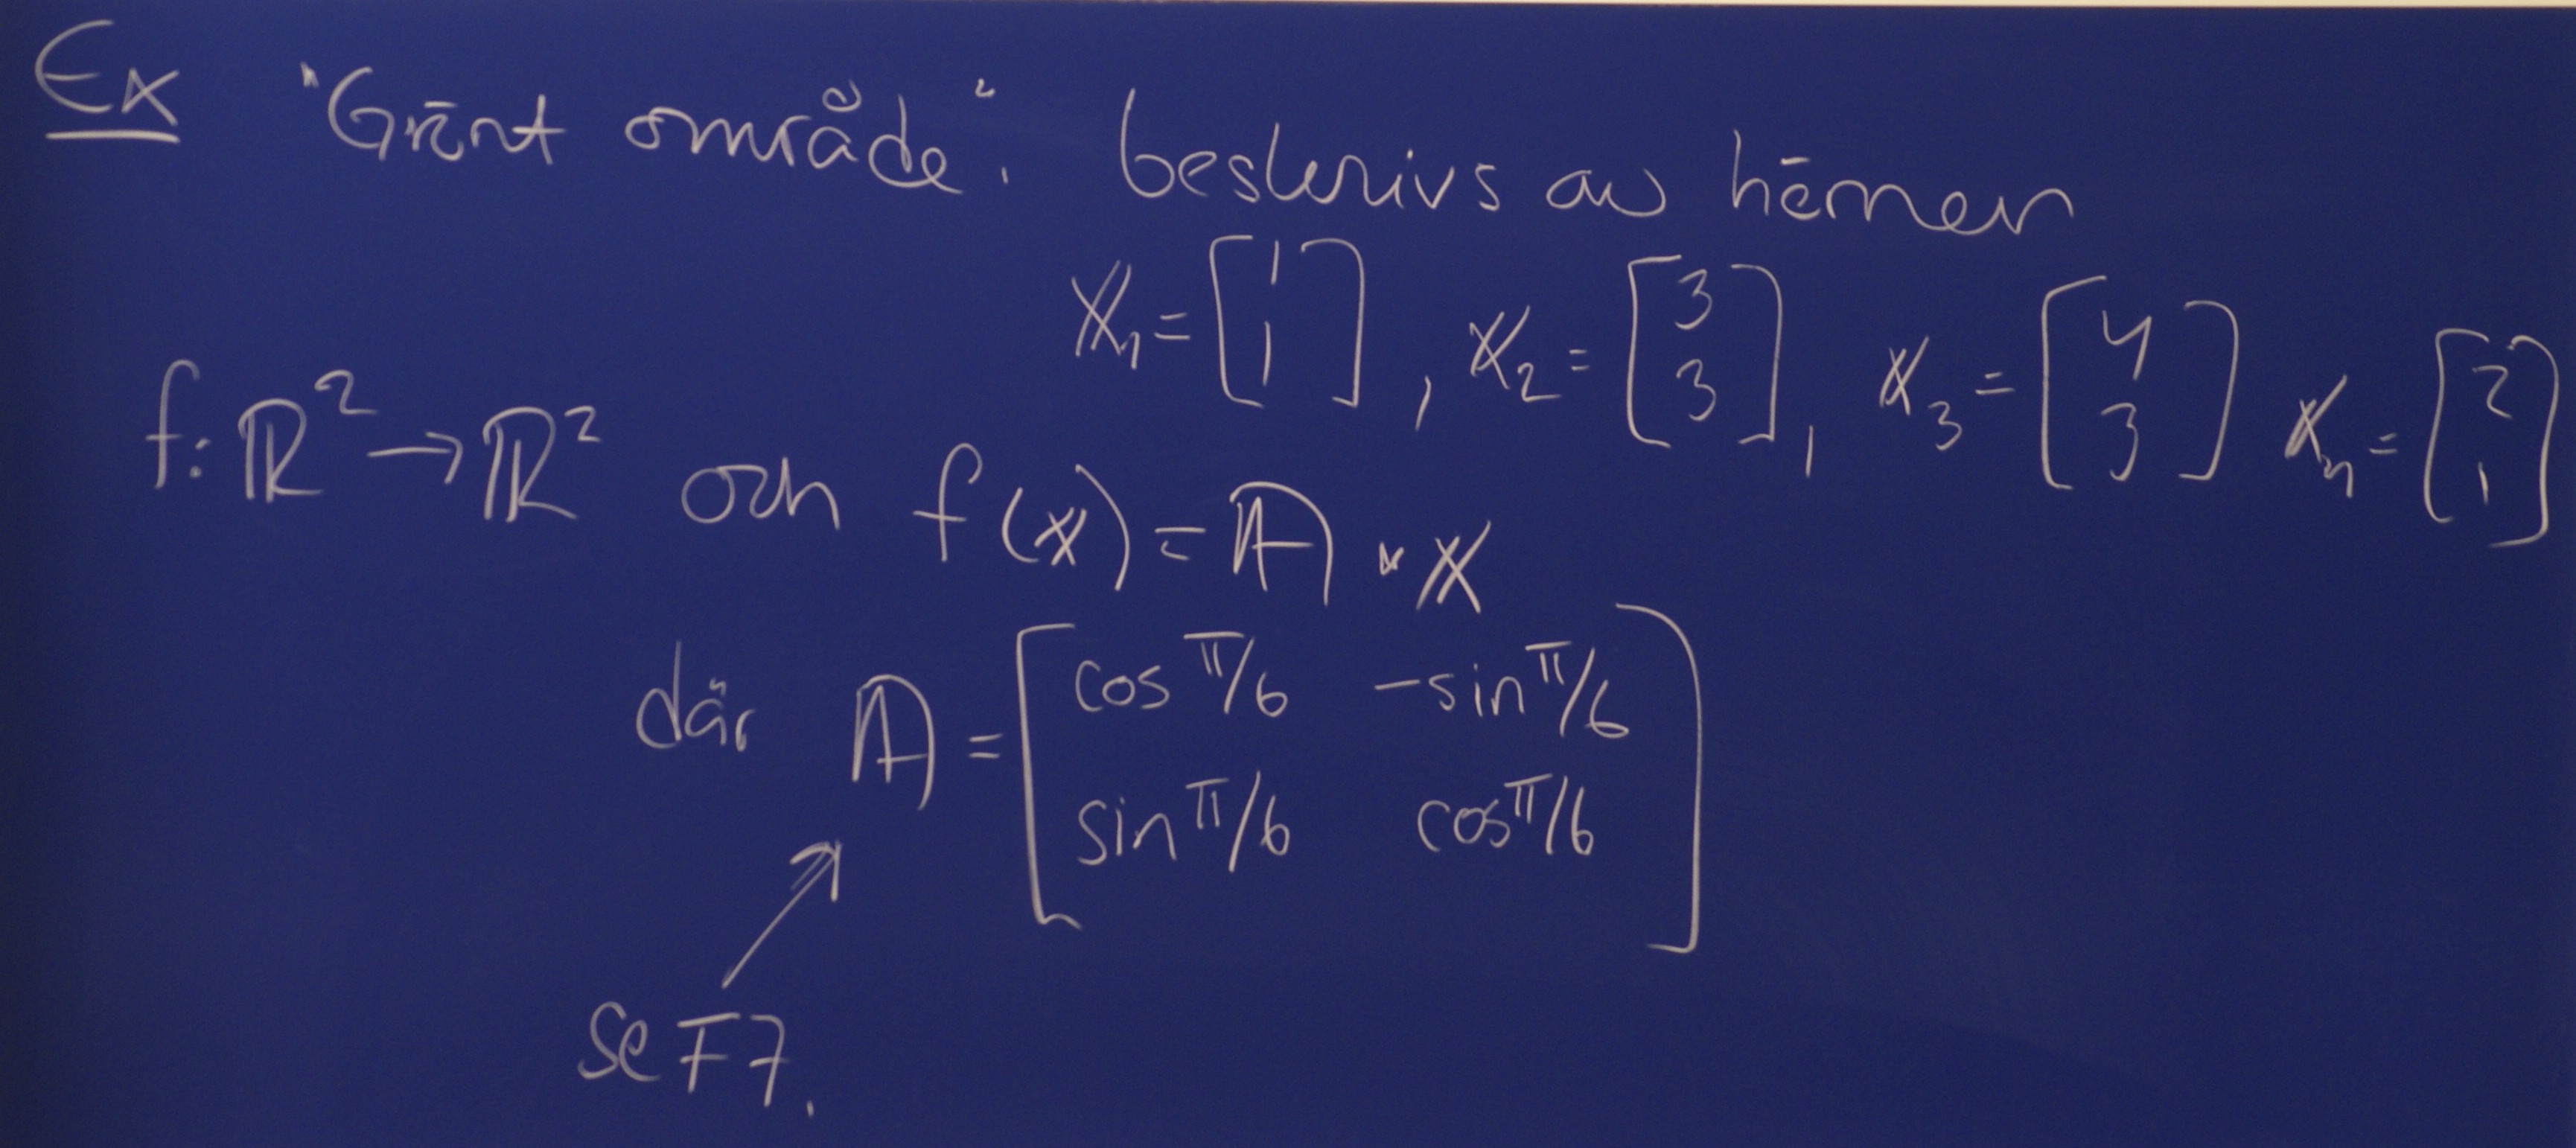 Ex "Grönt område". beskrivs av hörnen
X₁ = [1 1], X₂ = [3 3], X₃ = [4 3] X₄ = [2 1]
f: ℝ² → ℝ² och f(X) = A · X
där A = [cos π/6 -sin π/6
sin π/6 cos π/6]
Se F7.